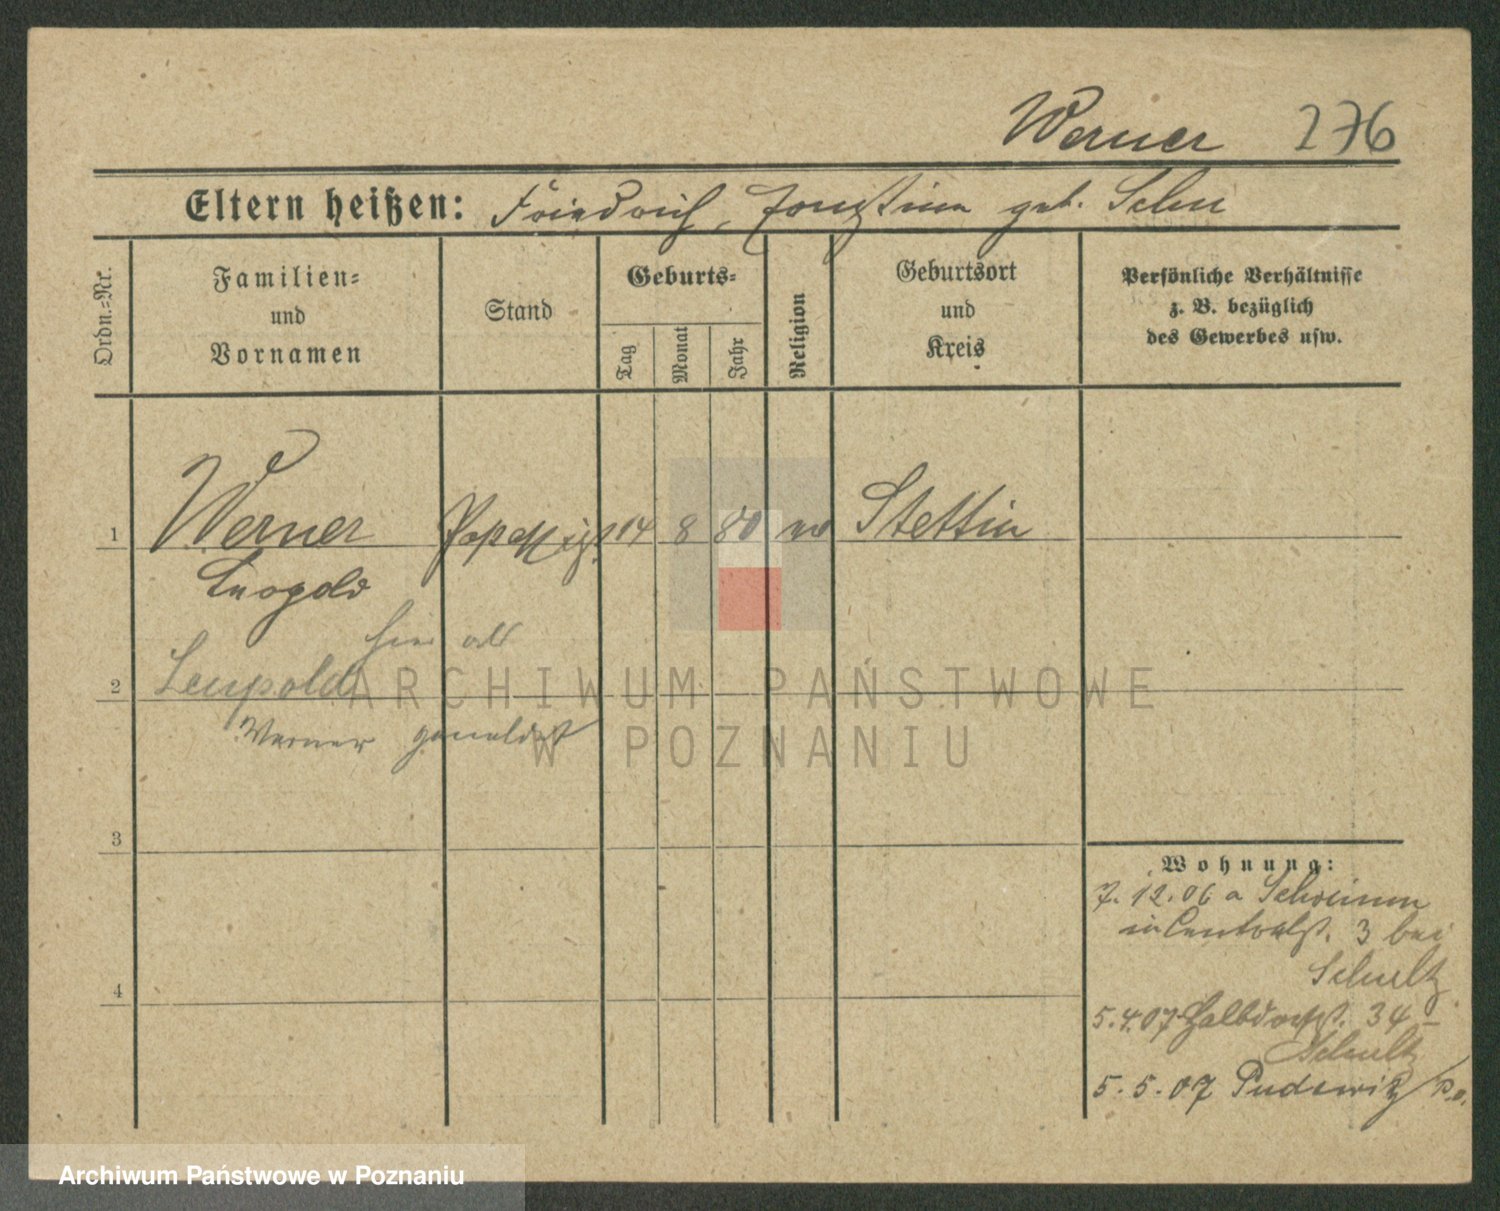 Werner 276
Eltern heißen: Friedrich, geb.
Ordn.-Nr.
Familien-
und
Vornamen
Stand
Geburts-
Tag
Monat
Jahr
Religion
Geburtsort
und
Kreis
Persönliche Verhältnisse
z. B. bezüglich
des Gewerbes usw.
1 Werner 14 8 80 Stettin
Leopold
hier als
2 Leupold
Werner gemeldet
3
4
Wohnung:
7.12.06 a
in Centralst. 3 bei
Schultz
5.4.07 Halbdorfst. 34 –
Schultz
5.5.07 Pudewitz
ARCHIWUM PAŃSTWOWE
W POZNANIU
Archiwum Państwowe w Poznaniu